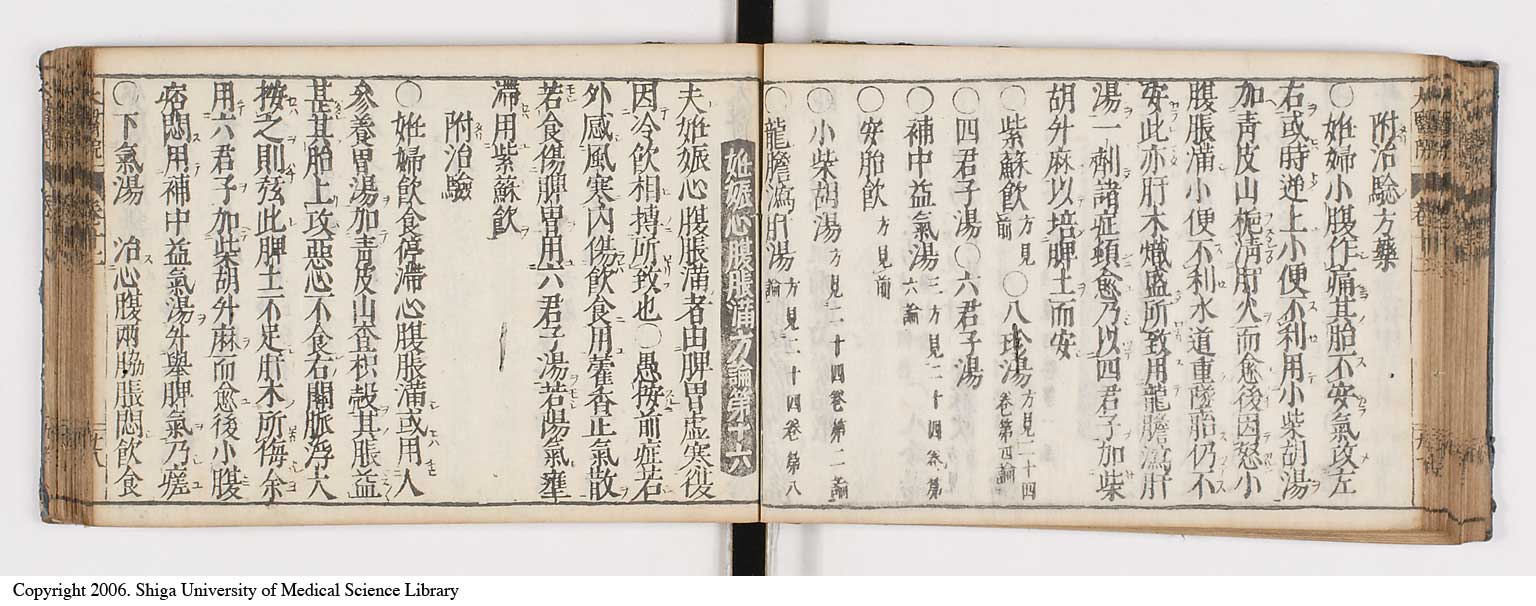 附治驗方藥
○妊婦小腹作痛其胎不安氣攻左
右或時逆上小便不利用小柴胡湯
加青皮山梔清肝火而愈後因怒小
腹脹滿小便不利水道重墜胎仍不
安此亦肝木熾盛所致用龍膽瀉肝
湯一劑諸症頓愈乃以四君子加柴
胡升麻以培脾土而安
○紫蘇飲方見前○八珍湯方見二十四卷第四論
○四君子湯○六君子湯
○補中益氣湯三方見二十四卷第六論
○安胎飲方見前
○小柴胡湯方見二十四卷第二論
○龍膽瀉肝湯方見二十四卷第八論
妊娠心腹脹滿方論第十六
夫妊娠心腹脹滿者由脾胃虛寒復
因冷飲相摶所致也○愚按前症若
外感風寒內傷飲食用藿香正氣散
若食傷脾胃用六君子湯若陽氣壅
滯用紫蘇飲
附治驗
○妊婦飲食停滯心腹脹滿或用人
參養胃湯加青皮山査枳殼其脹益
甚其胎上攻惡心不食右關脈浮大
按之則弦此脾土不足肝木所侮余
用六君子加柴胡升麻而愈後小腹
痞悶用補中益氣湯升舉脾氣乃瘥
○下氣湯 治心腹兩脇脹悶飲食
Copyright 2006. Shiga University of Medical Science Library